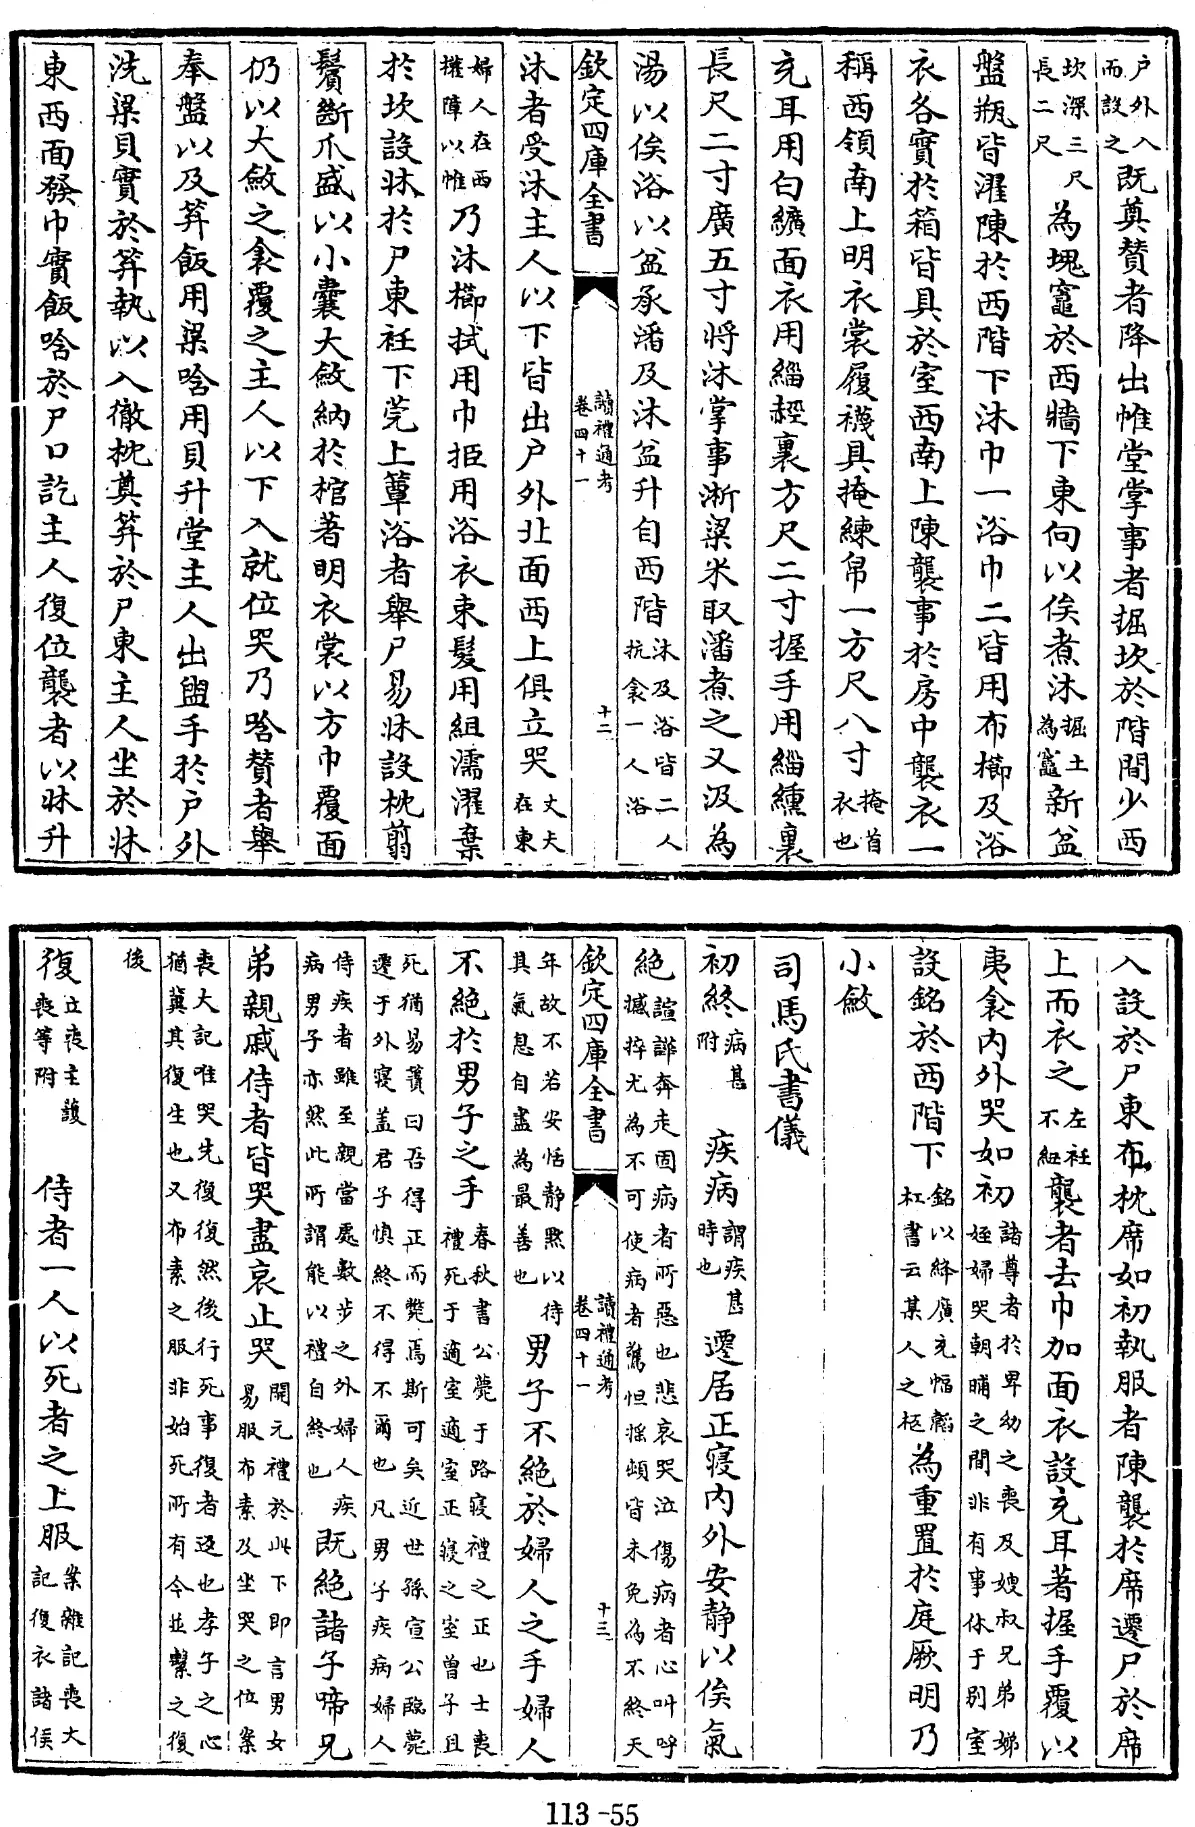 户外入而設之既奠贊者降出帷堂掌事者掘坎於階間少西
坎深三尺長二尺為塊竈於西牆下東向以俟煮沐掘土為竈新盆
盤瓶皆濯陳於西階下沐巾一浴巾二皆用布櫛及浴
衣各實於箱皆具於室西南上陳襲事於房中襲衣一
稱西領南上明衣裳履襪具掩練帛一方尺八寸掩首衣也
充耳用白纊面衣用緇䞓裏方尺二寸握手用緇纁裏
長尺二寸廣五寸將沐掌事淅粱米取潘煮之又汲為
湯以俟浴以盆承潘及沐盆升自西階沐及浴皆二人抗衾一人浴
欽定四庫全書
讀禮通考
卷四十一
十二
沐者受沐主人以下皆出户外北面西上俱立哭丈夫在東
婦人在西權障以帷乃沐櫛拭用巾挋用浴衣束髮用組濡濯棄
於坎設牀於尸東衽下莞上簟浴者舉尸易牀設枕翦
鬢斷爪盛以小囊大斂納於棺著明衣裳以方巾覆面
仍以大斂之衾覆之主人以下入就位哭乃唅贊者舉
奉盤以及笲飯用粱唅用貝升堂主人出盥手於户外
洗粱貝實於笲執以入徹枕奠笲於尸東主人坐於牀
東西面發巾實飯唅於尸口訖主人復位襲者以牀升
入設於尸東布枕席如初執服者陳襲於席遷尸於席
上而衣之左衽不紐襲者去巾加面衣設充耳著握手覆以
夷衾内外哭如初諸尊者於卑幼之喪及嫂叔兄弟娣姪婦哭朝晡之間非有事休于别室
設銘於西階下銘以絳廣充幅韜杠書云某人之柩為重置於庭厥明乃
小斂
司馬氏書儀
初終病甚附 疾病謂疾甚時也遷居正寢内外安靜以俟氣
絶諠譁奔走固病者所惡也悲哀哭泣傷病者心叫呼撼捽尤為不可使病者驚怛摇頓皆未免為不終天
欽定四庫全書
讀禮通考
卷四十一
十三
年故不若安恬靜默以待其氣息自盡為最善也男子不絶於婦人之手婦人
不絶於男子之手春秋書公薨于路寢禮之正也士喪禮死于適室適室正寢之室曽子且
死猶易簀曰吾得正而斃焉斯可矣近世孫宣公臨薨遷于外寢盖君子慎終不得不爾也凡男子疾病婦人
侍疾者雖至親當處數步之外婦人疾病男子亦然此所謂能以禮自終也既絶諸子啼兄
弟親戚侍者皆哭盡哀止哭開元禮於此下即言男女易服布素及坐哭之位案
喪大記唯哭先復復然後行死事復者返也孝子之心猶冀其復生也又布素之服非始死所有今並繫之復
後
復立喪主䕶喪等附 侍者一人以死者之上服案雜記喪大記復衣諸侯
113-55